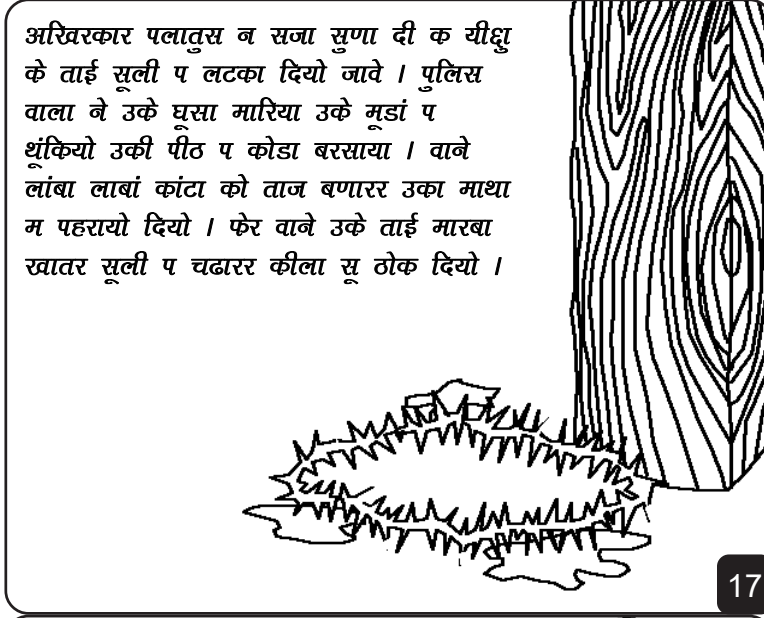 अखिरकार पलातुस न सजा सुणा दी क यीशु
के ताई सूली प लटका दियो जावे । पुलिस
वाला ने उके घूसा मारिया उके मूडां प
थूंकियो उकी पीठ प कोडा बरसाया । वाने
लांबा लाबां कांटा को ताज बणारर उका माथा
म पहरायो दियो । फेर वाने उके ताई मारबा
खातर सूली प चढारर कीला सू ठोक दियो ।
17